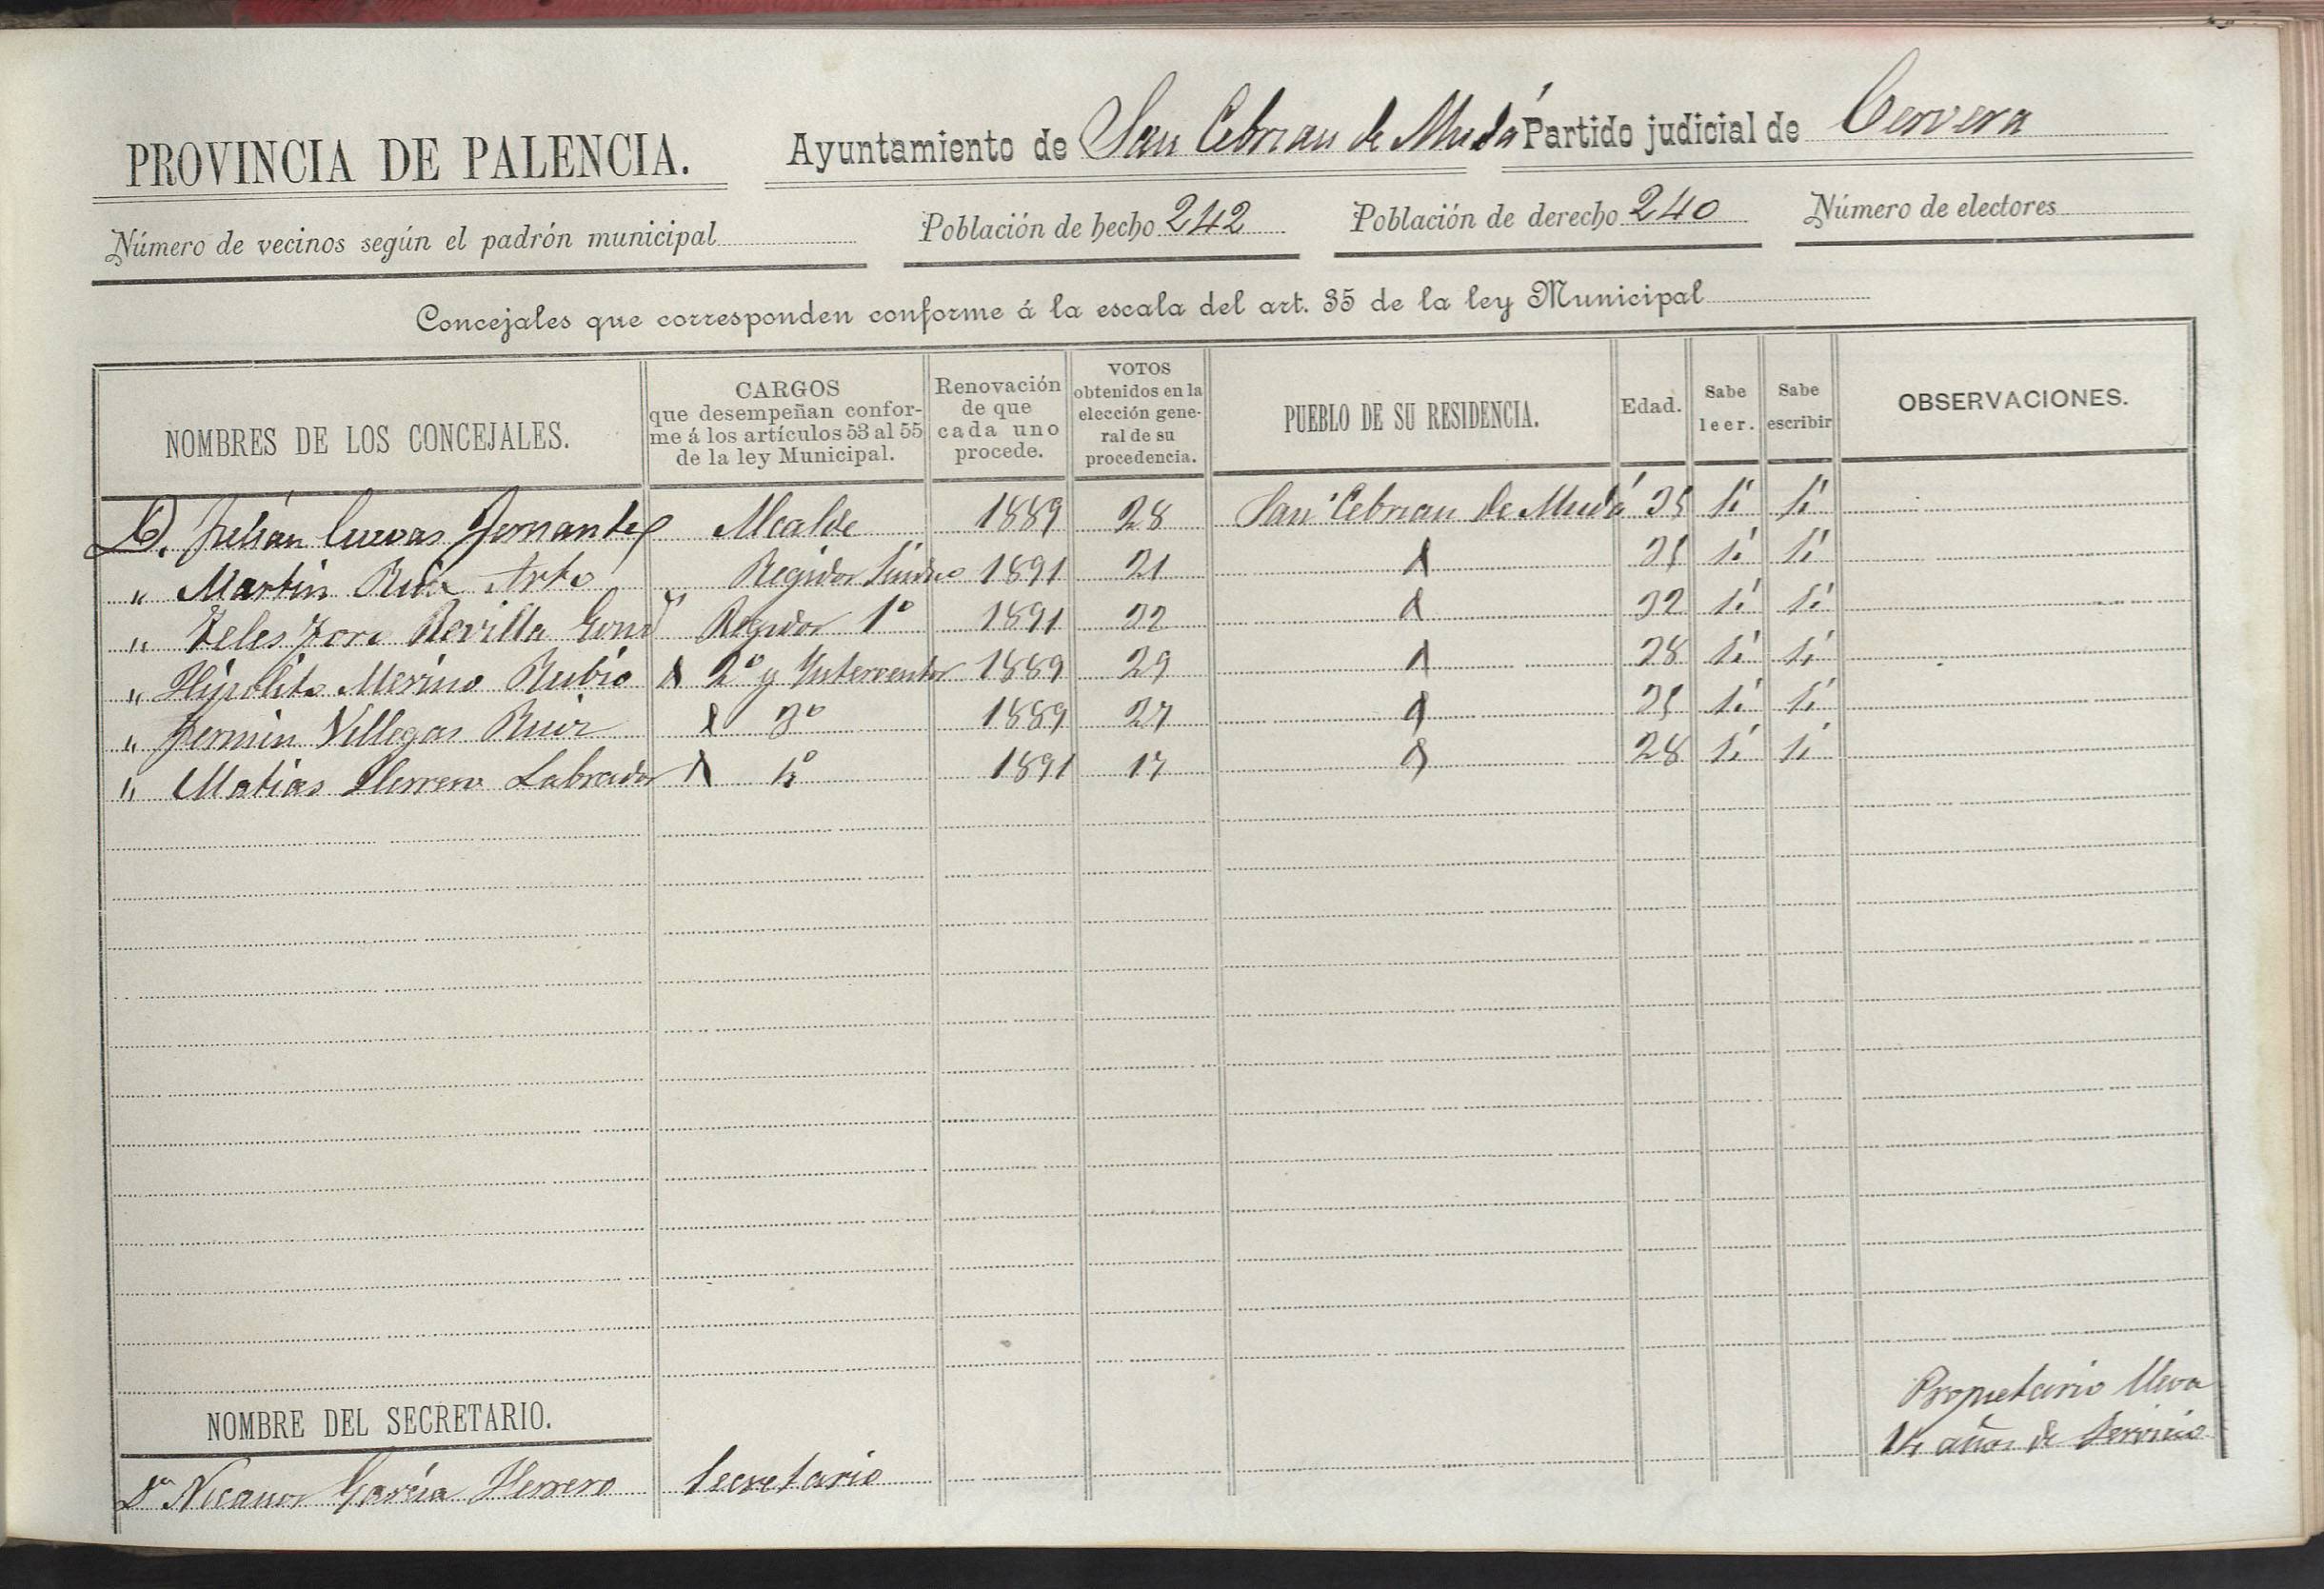 PROVINCIA DE PALENCIA. Ayuntamiento de San Cebrian de Mudá Partido judicial de Cervera
Número de vecinos según el padrón municipal Población de hecho 242 Población de derecho 240 Número de electores
Concejales que corresponden conforme á la escala del art. 35 de la ley Municipal
NOMBRES DE LOS CONCEJALES.
CARGOS
que desempeñan confor-
me á los artículos 53 al 55
de la ley Municipal.
Renovación
de que
cada uno
procede.
VOTOS
obtenidos en la
elección gene-
ral de su
procedencia.
PUEBLO DE SU RESIDENCIA.
Edad.
Sabe
leer.
Sabe
escribir
OBSERVACIONES.
D. Julián Cuevas Alcalde 1889 28 San Cebrian de Mudá 35 Si Si
" Martin Ruiz Regidor Sindico 1891 21 35 Si Si
" Telesforo Revilla Regidor 1º 1891 22 32 Si Si
" Hipolito Merino Rubio 2º y Interventor 1889 29 38 Si Si
" Fermin Villegas Ruiz 3º 1889 27 35 Si Si
" Matias Herrero Labrador 4º 1891 17 28 Si Si
NOMBRE DEL SECRETARIO.
Propietario lleva
14 años de Servicio
Dn Nicanor García Herrero Secretario